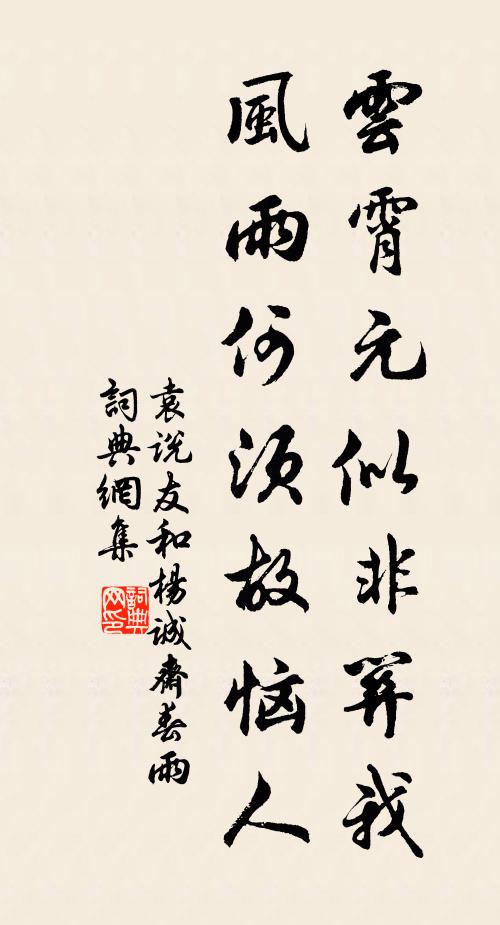 雲霄元似非關我
風雨何須故惱人
袁説友和楊誠齋春雨
詞典網集
詞典网印